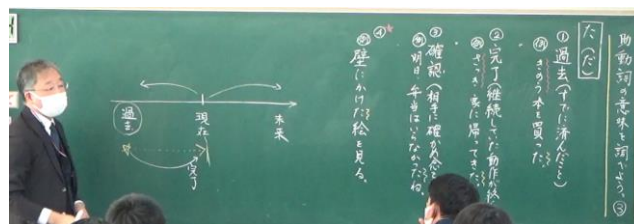 助動詞の意味を調べよう。③
た(だ)
①過去(すでに済んだこと)
例 きのう本を買った。
②完了(継続していた動作が終
例 さっき家に帰ってきた。
③確認(相手に確かめる
例 明日、弁当はいらなかったね
④
例 壁にかけた絵を見る。
未来
現在
過去
完了